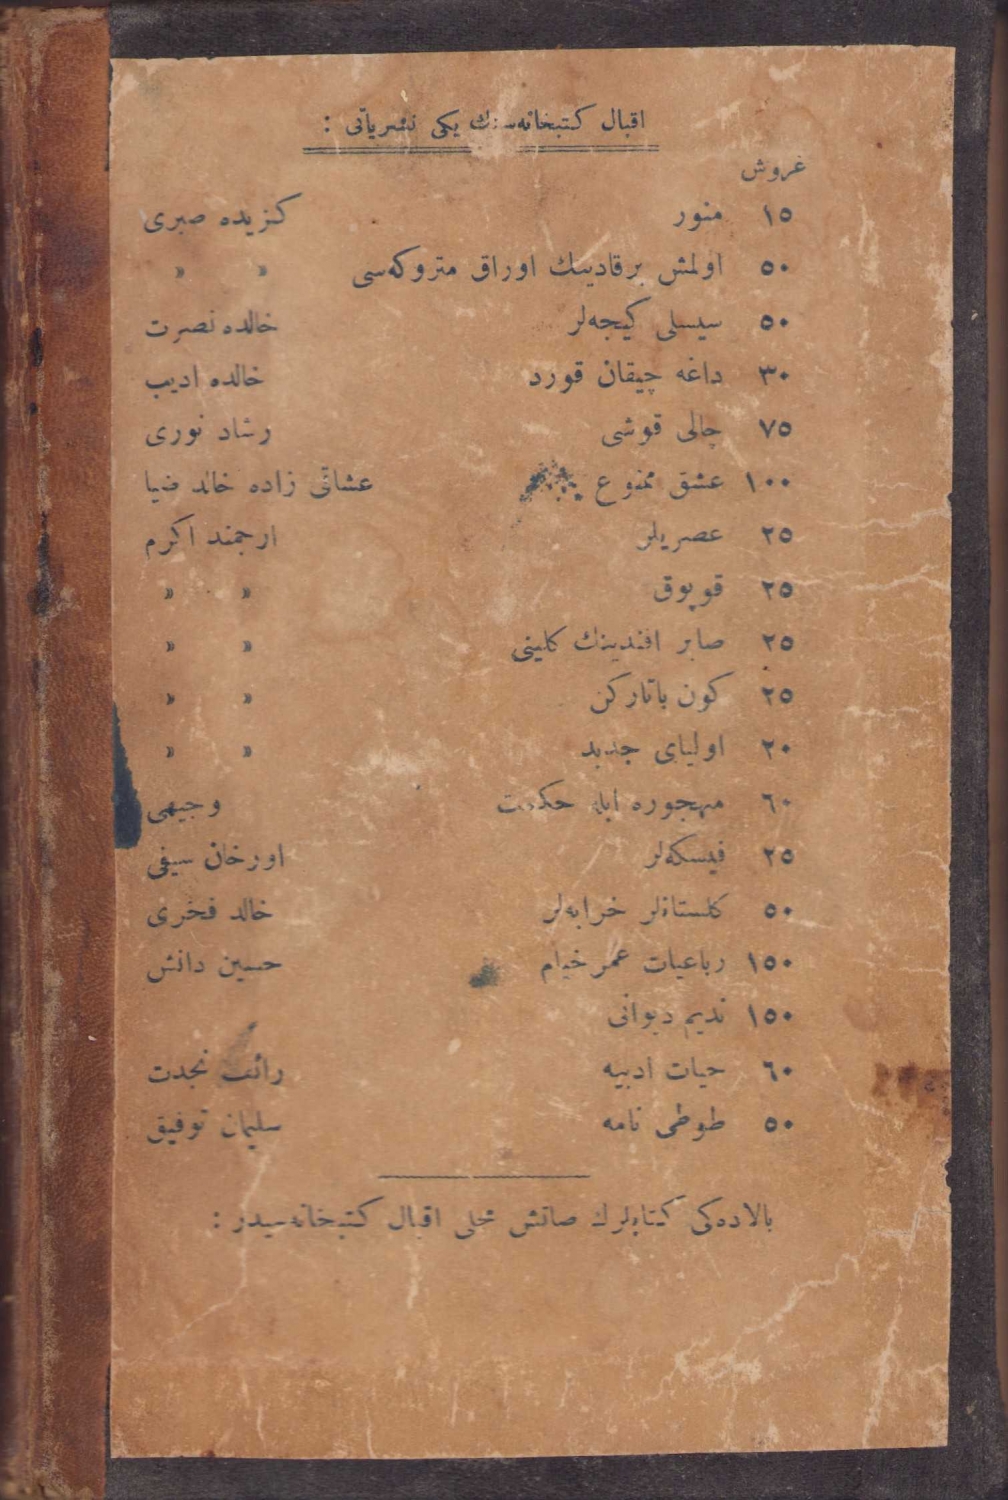 اقبال كتبخانه‌سنك یكی نشریاتی :
غروش
١٥ منور كزیده صبری
٥٠ اولمش برقادینك اوراق متروكه‌سی » »
٥٠ سیسلی كیجه‌لر خالده نصرت
٣٠ داغه چیقان قورد خالده ادیب
٧٥ چالی قوشی رشاد نوری
١٠٠ عشق ممنوع عشاقی زاده خالد ضیا
٢٥ عصریلر ارجمند اكرم
٢٥ قوپوق » »
٢٥ صابر افندینك كلینی » »
٢٥ كون باتاركن » »
٢٠ اولیای جدید » »
٦٠ مهجوره ایله حكمت وجیهی
٢٥ فیسكه‌لر اورخان سیفی
٥٠ كلستانلر خرابه‌لر خالد فخری
١٥٠ رباعیات عمر خیام حسین دانش
١٥٠ ندیم دیوانی
٦٠ حیات ادبیه رائف نجدت
٥٠ طوطی نامه سلیمان توفیق
بالاده‌كی كتابلرك صاتش محلی اقبال كتبخانه‌سیدر :